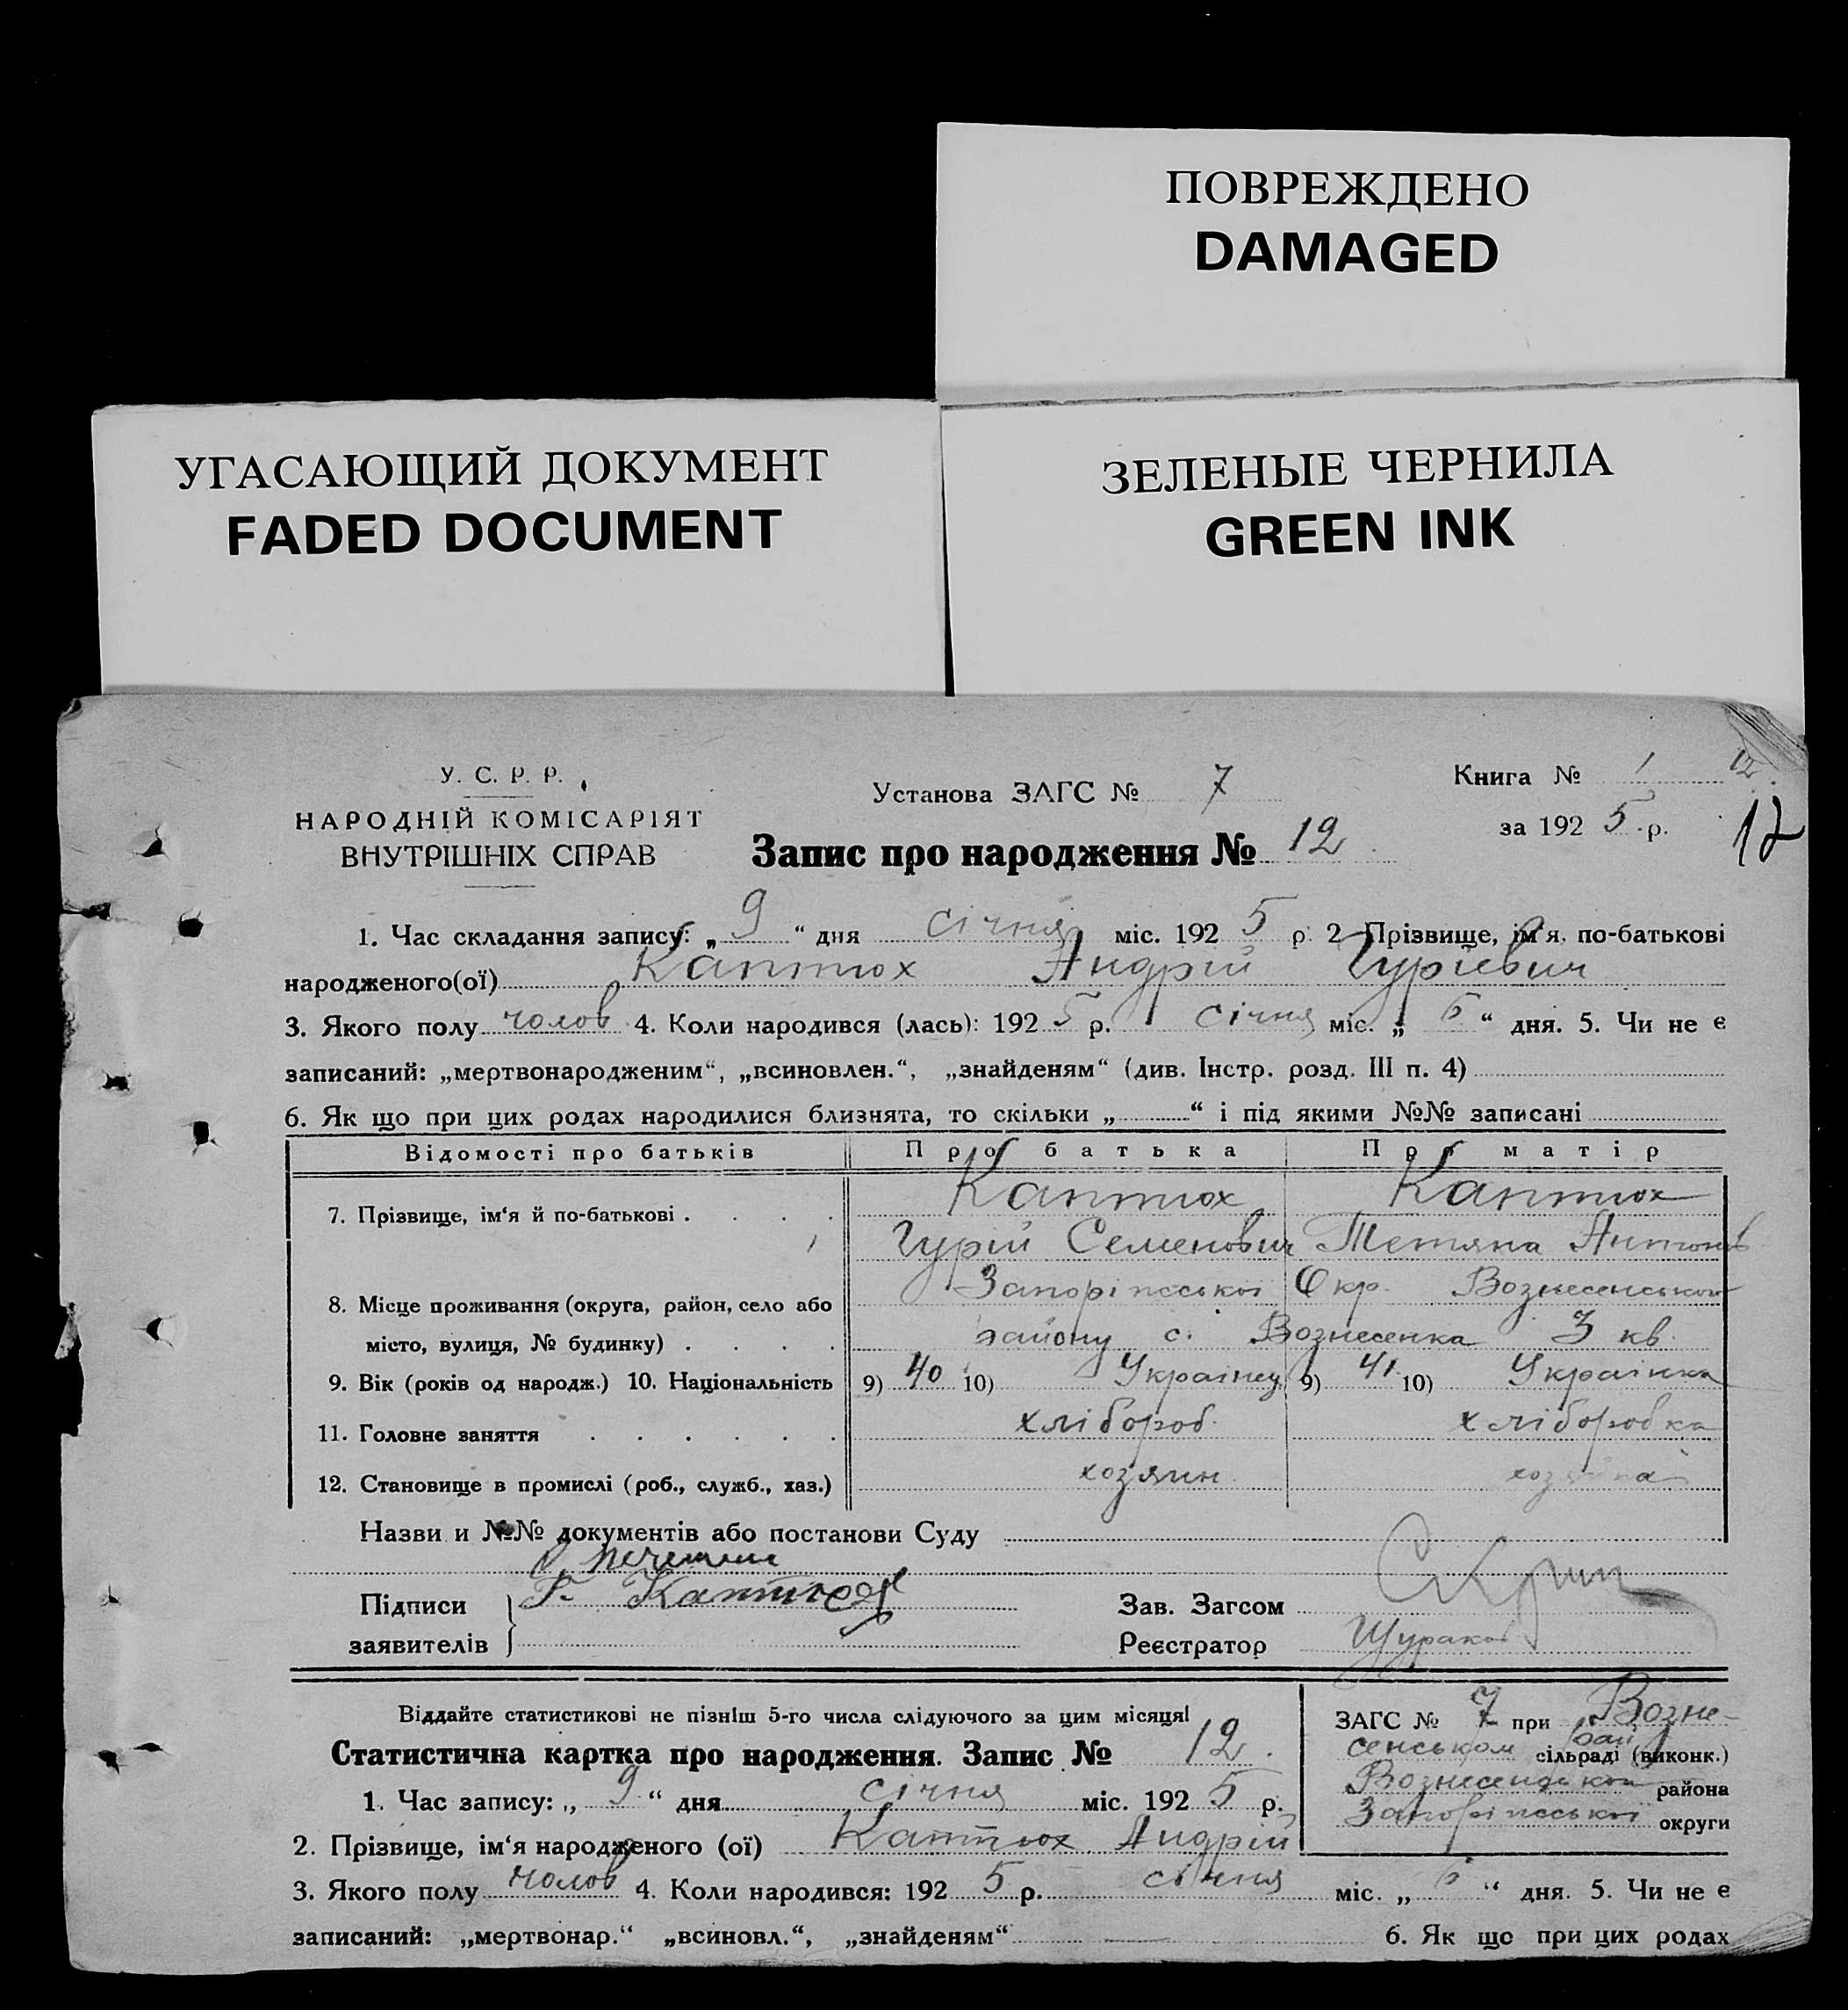 ПОВРЕЖДЕНО
DAMAGED
УГАСАЮЩИЙ ДОКУМЕНТ
FADED DOCUMENT
ЗЕЛЕНЫЕ ЧЕРНИЛА
GREEN INK
У. С. Р. Р.
НАРОДНІЙ КОМІСАРІЯТ
ВНУТРІШНІХ СПРАВ
Установа ЗАГС № 7
Книга № 1 12
за 192 5 р. 12
Запис про народження № 12
1. Час складання запису: „ 9 “ дня січня міс. 192 5 р. 2 Прізвище, ім'я, по-батькові
народженого(ої) Каптюх Андрій Гурієвич
3. Якого полу чолов 4. Коли народився (лась): 192 5 р. січня міс. „ 6 “ дня. 5. Чи не є
записаний: „мертвонародженим“, „всиновлен.“, „знайденям“ (див. Інстр. розд. III п. 4)
6. Як що при цих родах народилися близнята, то скільки „ “ і під якими №№ записані
Відомості про батьків Про батька Про матір
7. Прізвище, ім‘я й по-батькові . . . . Каптюх Каптюх
Гурій Семенович Тетяна Антонів
8. Місце проживання (округа, район, село або Запоріпської Окр. Вознесенського
місто, вулиця, № будинку) . . . . району с. Вознесенка 3 кв.
9. Вік (років од народж.) 10. Національність 9) 40 10) Українец 9) 41 10) Українка
11. Головне заняття . . . . . . хлібороб. хліборобка
12. Становище в промислі (роб., служб., хаз.) хозяин хозяйка
Назви и №№ документів або постанови Суду
Підписи Г. Каптюх Зав. Загсом
заявителів Реєстратор
Віддайте статистикові не пізніш 5-го числа слідуючого за цим місяця!
Статистична картка про народження. Запис № 12.
ЗАГС № 7 при Возне-
сенськом рай сільраді (виконк.)
Вознесенської района
Запоріпської округи
1. Час запису: „ 9 “ дня січня міс. 192 5 р.
2. Прізвище, ім‘я народженого (ої) Каптюх Андрій
3. Якого полу чолов 4. Коли народився: 192 5 р. січня міс. „ 6 “ дня. 5. Чи не є
записаний: „мертвонар.“ „всиновл.“, „знайденям“ 6. Як що при цих родах